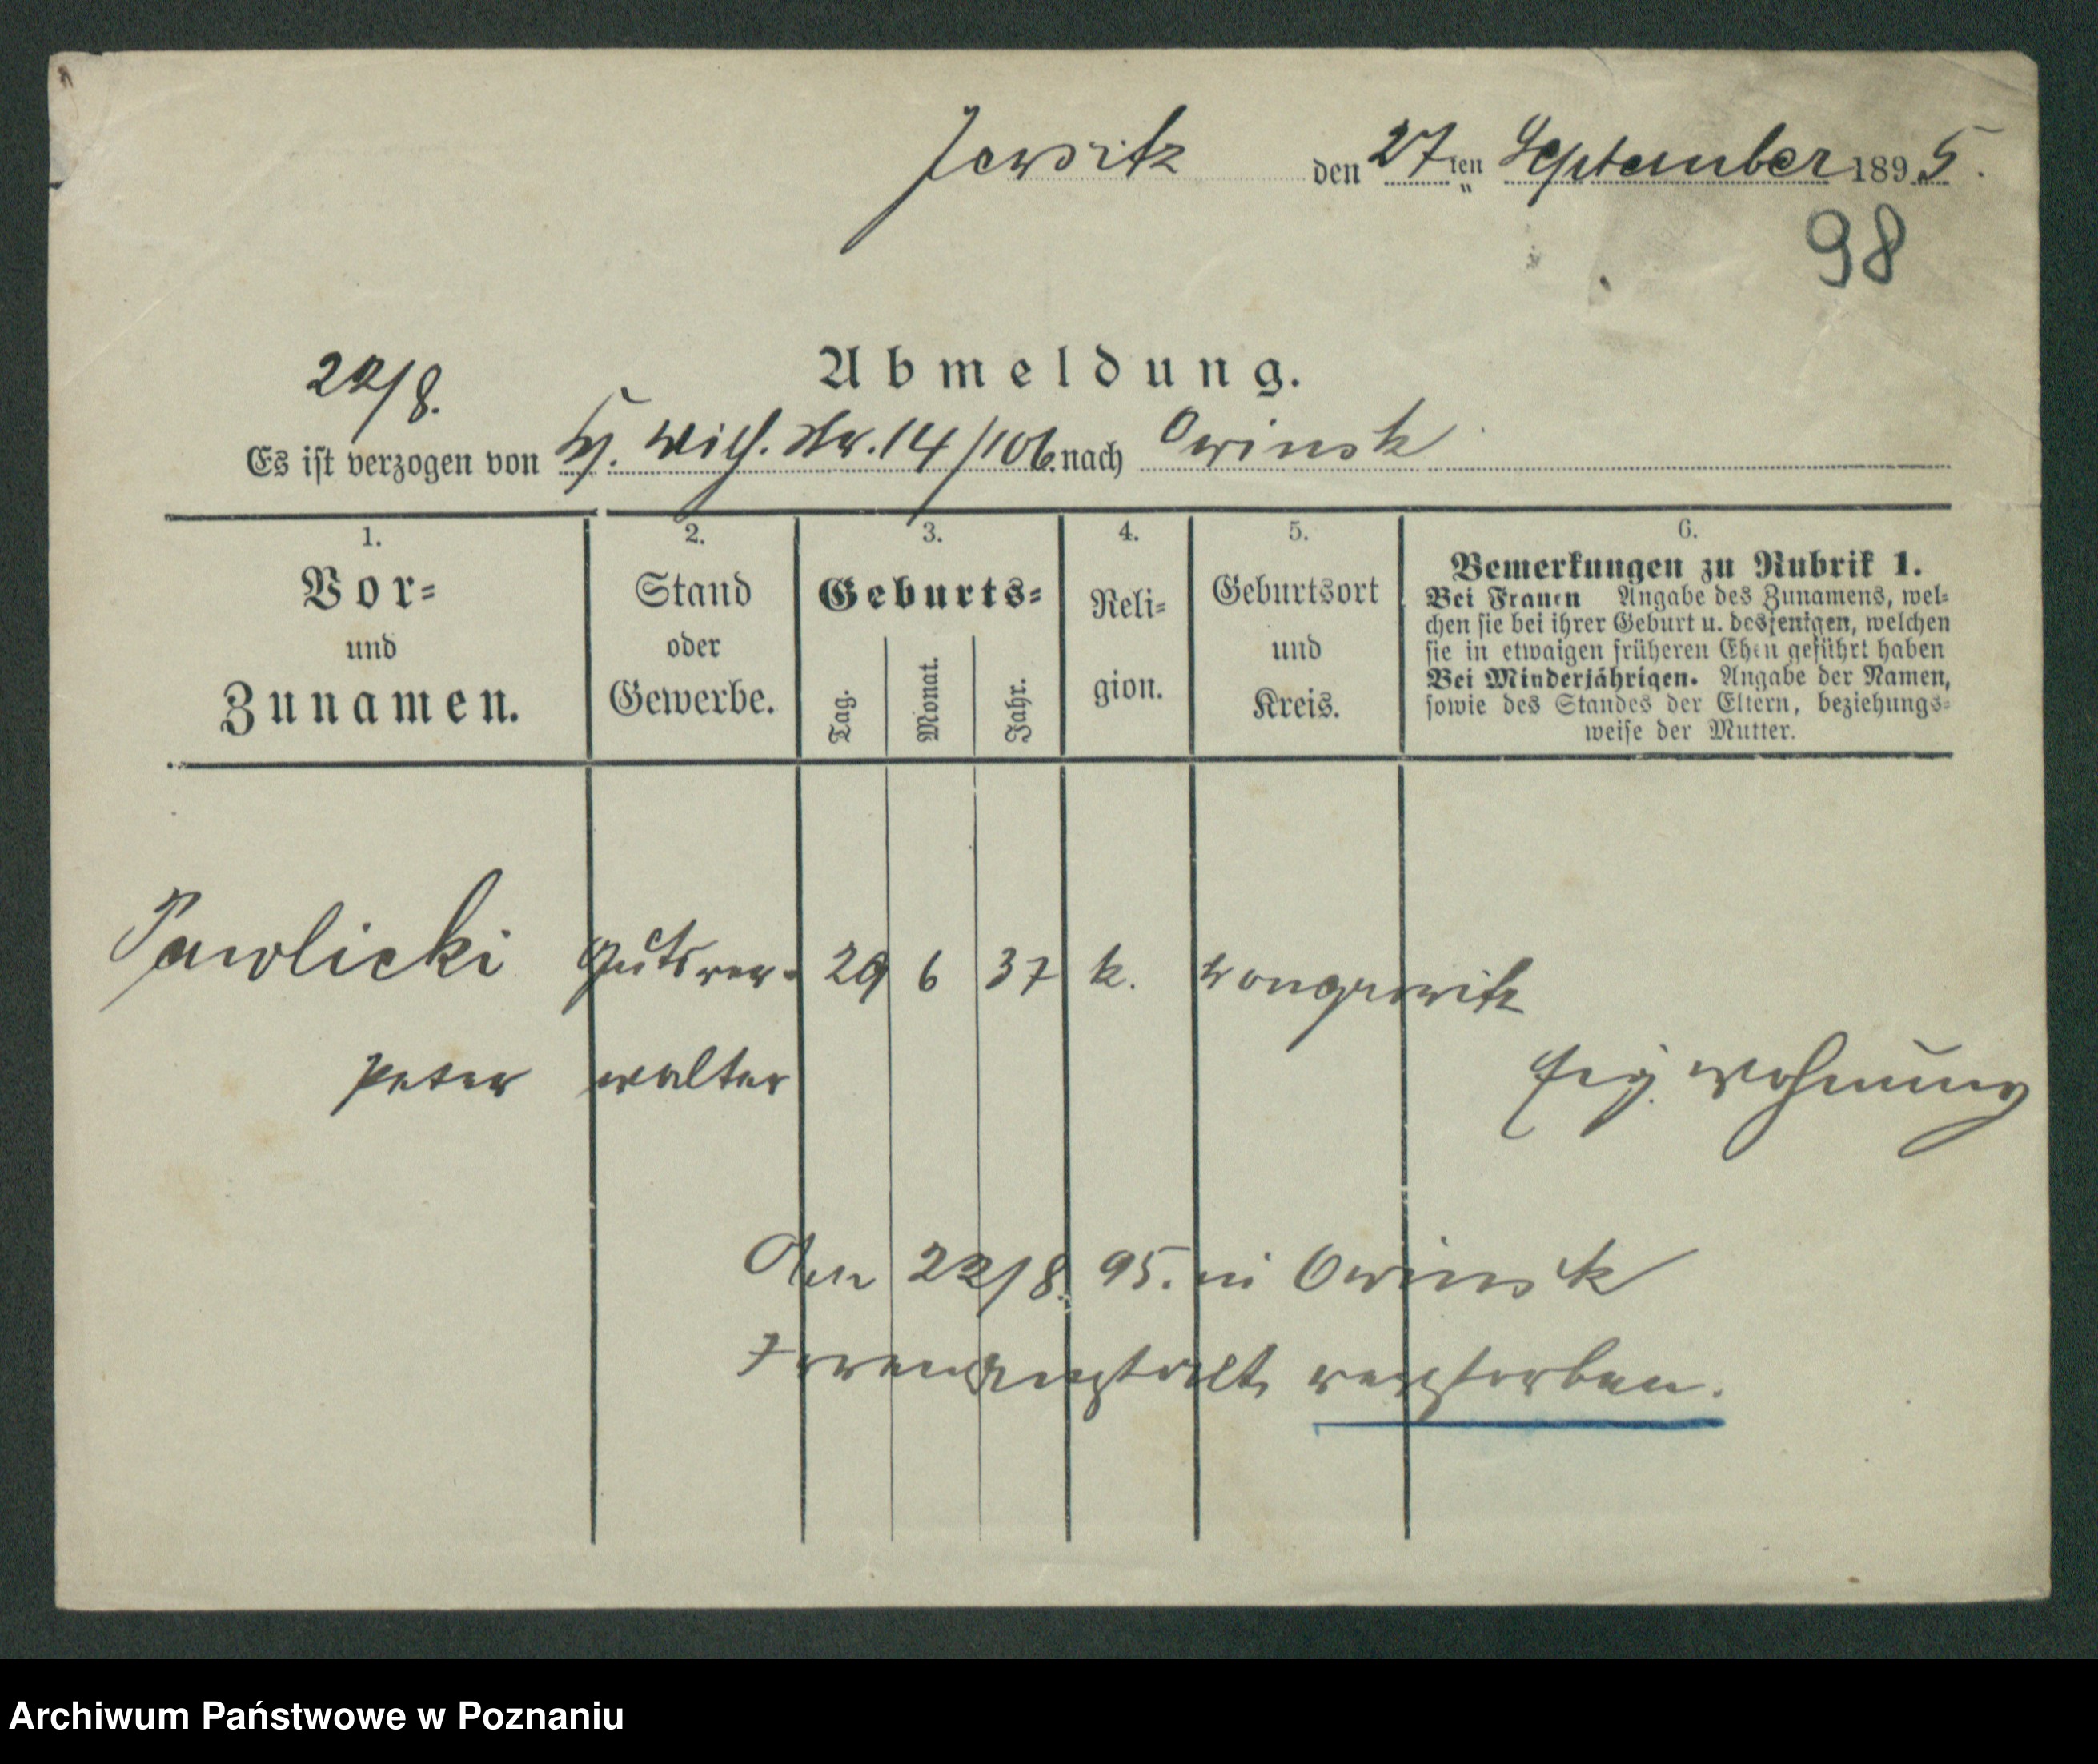 Jersitz den 27ten September 1895.
98
Abmeldung.
22/8.
Es ist verzogen von Wilh. Str. 14/106. nach Owinsk
1. 2. 3. 4. 5. 6.
Vor- und Zunamen.
Stand oder Gewerbe.
Geburts-
Tag. Monat. Jahr.
Reli-
gion.
Geburtsort und Kreis.
Bemerkungen zu Rubrik 1.
Bei Frauen Angabe des Zunamens, wel-
chen sie bei ihrer Geburt u. desjenigen, welchen
sie in etwaigen früheren Ehen geführt haben
Bei Minderjährigen. Angabe der Namen,
sowie des Standes der Eltern, beziehungs-
weise der Mutter.
Pawlicki Gutsver- 29 6 37 k. Wongrowitz
Peter walter Eig. Wohnung
Am 22/8. 95. in Owinsk
Irrenanstalt verstorben.
Archiwum Państwowe w Poznaniu